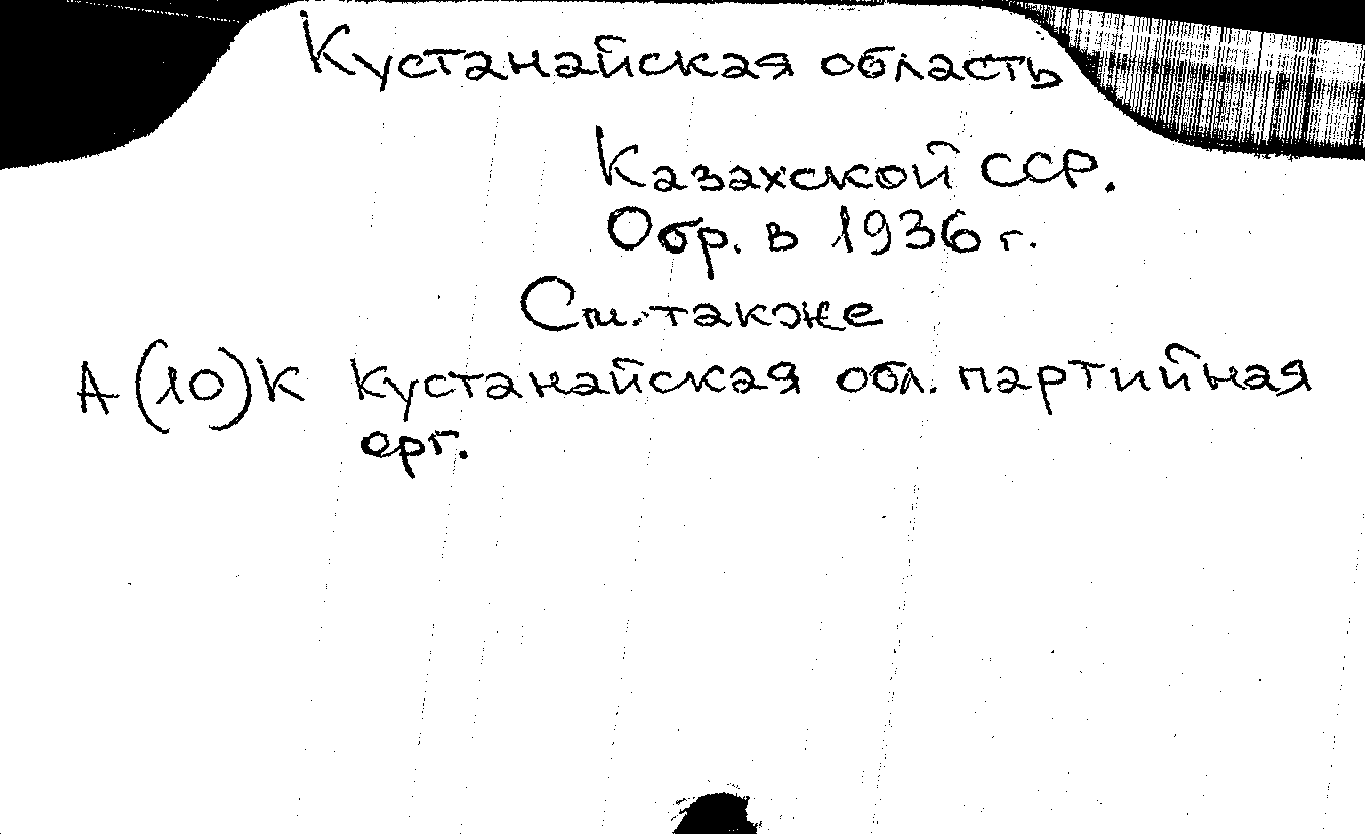 Кустанайская область
Казахской ССР.
Обр. в 1936 г.
См. также
А (10) К Кустанайская обл. партийная
орг.